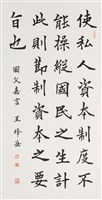 使私人資本制度不
能操縱國民之生計
此則節制資本之要
旨也
國父嘉言 王